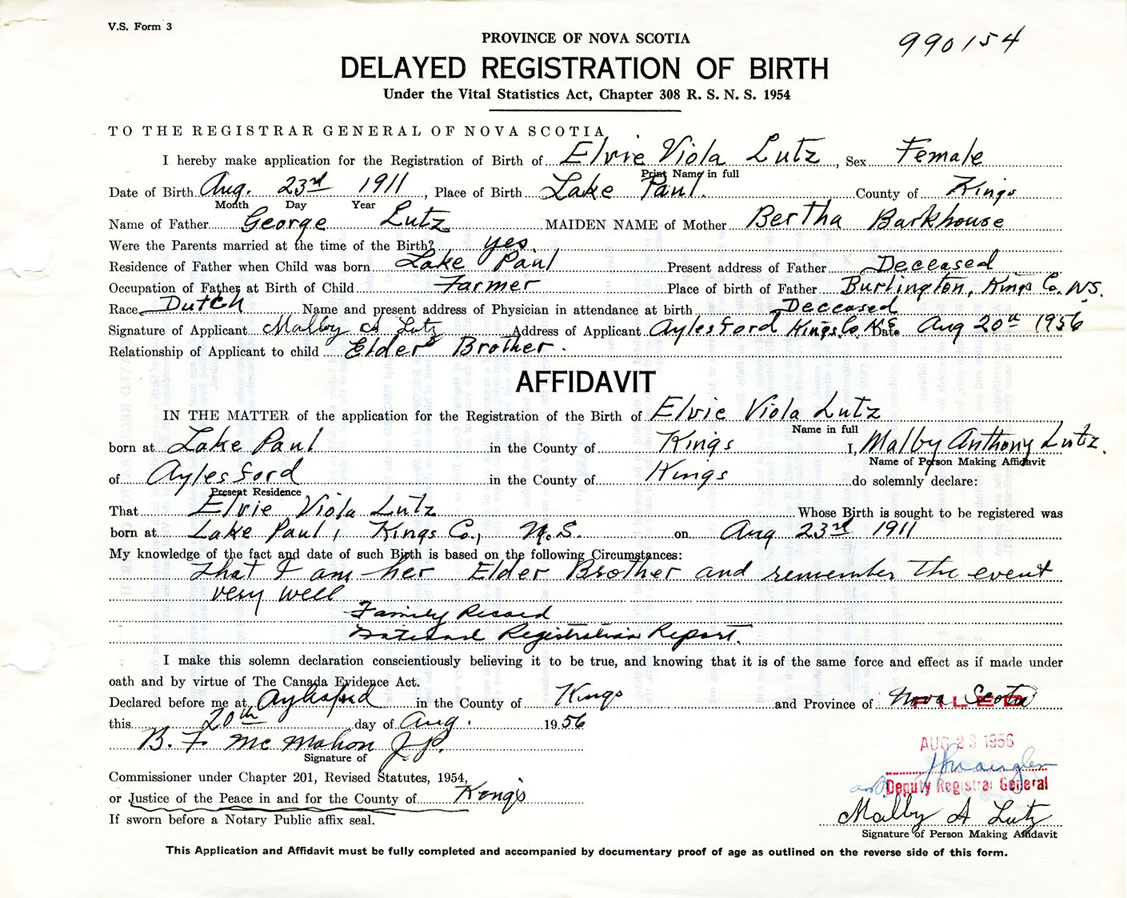 V.S. Form 3
990154
PROVINCE OF NOVA SCOTIA
DELAYED REGISTRATION OF BIRTH
Under the Vital Statistics Act, Chapter 308 R. S. N. S. 1954
TO THE REGISTRAR GENERAL OF NOVA SCOTIA
I hereby make application for the Registration of Birth of Elvie Viola Lutz, Sex Female
Print Name in full
Date of Birth Aug. 23rd 1911, Place of Birth Lake Paul. County of Kings
Month Day Year
Name of Father George Lutz MAIDEN NAME of Mother Bertha Barkhouse
Were the Parents married at the time of the Birth? yes.
Residence of Father when Child was born Lake Paul Present address of Father Deceased
Occupation of Father at Birth of Child Farmer Place of birth of Father Burlington, Kings Co. N.S.
Race Dutch Name and present address of Physician in attendance at birth Deceased
Signature of Applicant Malby A Lutz Address of Applicant Aylesford Kings Co. N.S. Date Aug 20th 1956
Relationship of Applicant to child Elder Brother.
AFFIDAVIT
IN THE MATTER of the application for the Registration of the Birth of Elvie Viola Lutz
Name in full
born at Lake Paul in the County of Kings I, Malby Anthony Lutz.
Name of Person Making Affidavit
of Aylesford in the County of Kings do solemnly declare:
Present Residence
That Elvie Viola Lutz Whose Birth is sought to be registered was
born at Lake Paul, Kings Co., N.S. on Aug 23rd 1911
My knowledge of the fact and date of such Birth is based on the following Circumstances:
that I am her Elder Brother and remember the event
very well
Family Record
National Registration Report.
I make this solemn declaration conscientiously believing it to be true, and knowing that it is of the same force and effect as if made under
oath and by virtue of The Canada Evidence Act.
Declared before me at Aylesford in the County of Kings and Province of Nova Scotia
FILED
this 20th day of Aug. 1956
B. F McMahon J.P.
Signature of
AUG 23 1956
Deputy Registrar General
Commissioner under Chapter 201, Revised Statutes, 1954,
or Justice of the Peace in and for the County of Kings
Malby A Lutz
Signature of Person Making Affidavit
If sworn before a Notary Public affix seal.
This Application and Affidavit must be fully completed and accompanied by documentary proof of age as outlined on the reverse side of this form.